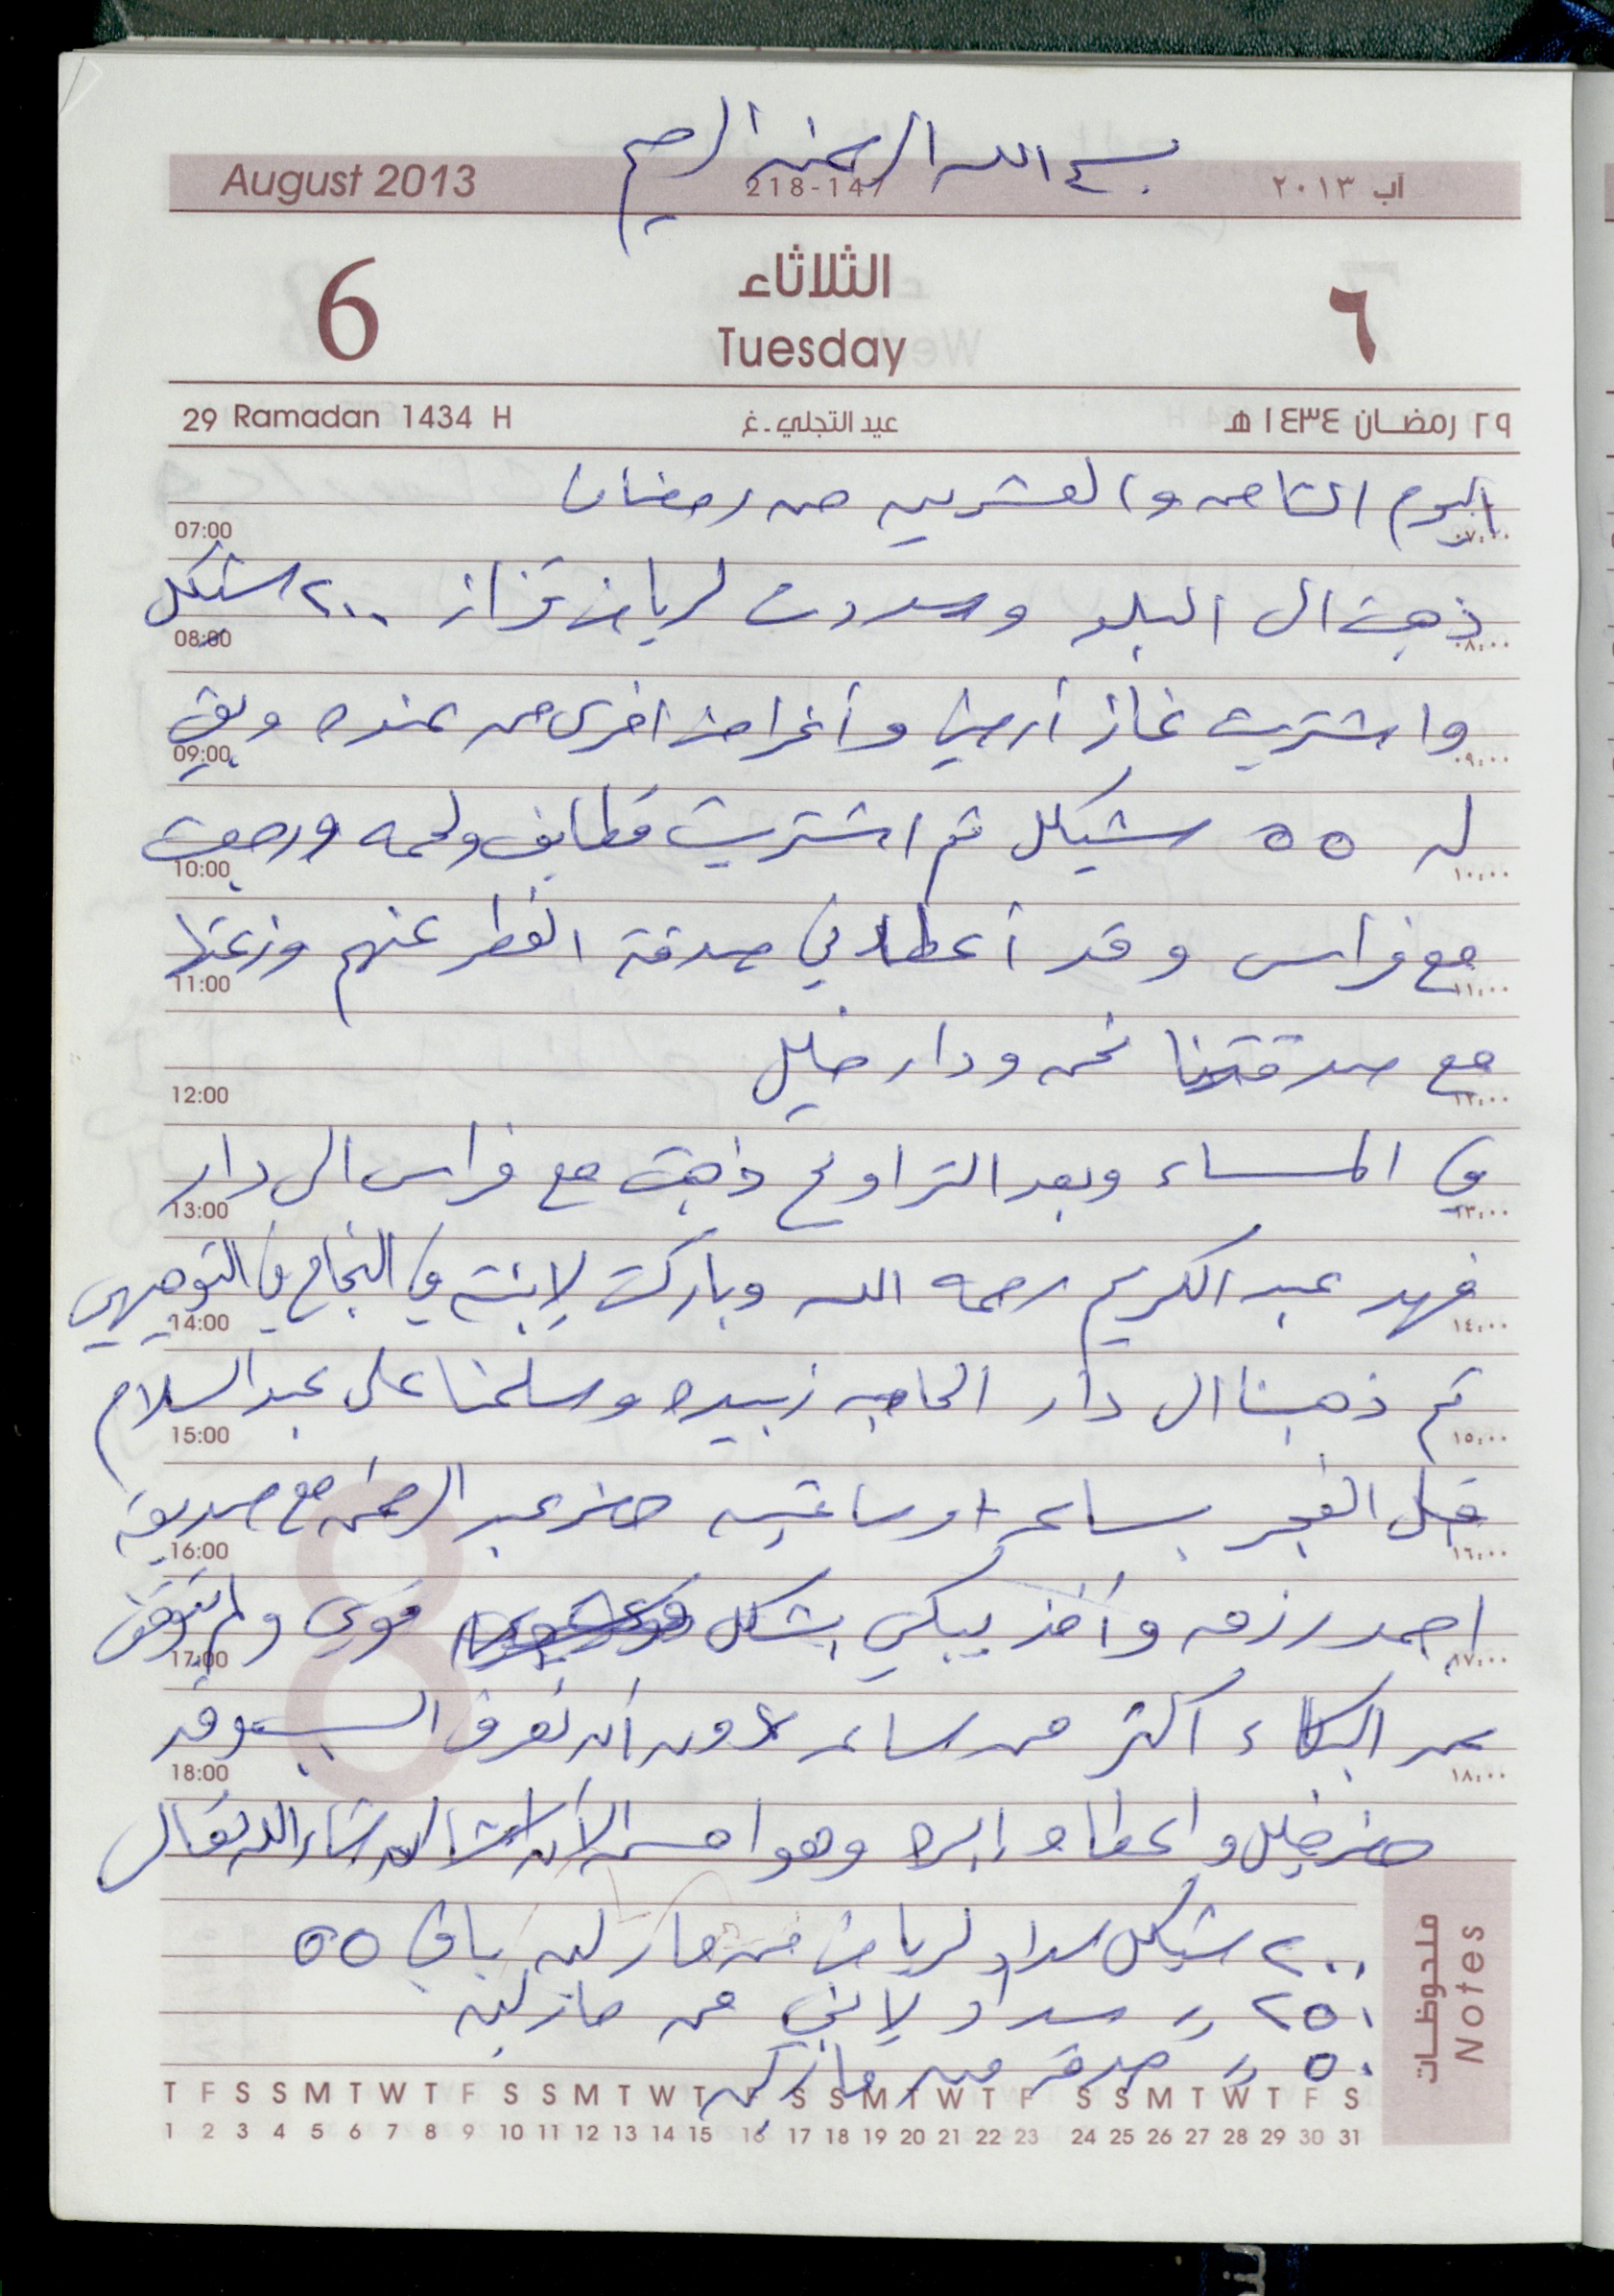 بسم الله الرحمن الرحيم
August 2013 218-147 آب ٢٠١٣
6 الثلاثاء ٦
Tuesday
29 Ramadan 1434 H عيد التجلي-غ ٢٩ رمضان ١٤٣٤ هـ
اليوم الثامن والعشرين من رمضان
07:00 ٠٧:٠٠
ذهبت الى البلد وسددت لرياض قزاز ٢٠٠ شيكل
08:00 ٠٨:٠٠
واشتريت غاز أرضي وأغراض اخرى من عنده وبقي
09:00 ٠٩:٠٠
له ٥٥ شيكل ثم اشتريت قطايف ولحمه ورجعت
10:00 ١٠:٠٠
مع فراس وقد أعطاني صدقة الفطر عنهم وزعتها
11:00 ١١:٠٠
مع صدقتنا نحن ودار خليل
12:00 ١٢:٠٠
في المساء وبعد التراويح ذهبت مع فراس الى دار
13:00 ١٣:٠٠
فهد عبد الكريم رحمه الله وباركت لابنته في النجاح في التوجيهي
14:00 ١٤:٠٠
ثم ذهبنا الى دار الحاجه زبيده وسلمنا على عبد السلام
15:00 ١٥:٠٠
قبل الفجر بساعة او ساعتين حضر عبد الرحمن مع صديقه
16:00 ١٦:٠٠
احمد رزمه وأخذ يبكي بشكل قوي ولم يتوقف
17:00 ١٧:٠٠
عن البكاء أكثر من ساعة دون أن نعرف السبب وقد
18:00 ١٨:٠٠
حضر خليل واعطاه إبره وهو احسن الآن ان شاء الله تعالى
٢٠٠ شيكل سداد لرياض من مازلين باقي ٥٥
٢٥٠ // سداد لابني من مازلين
٥٠ // صدقة من مازلين
ملحوظات
Notes
T F S S M T W T F S S M T W T S S M T W T F S S M T W T F S
1 2 3 4 5 6 7 8 9 10 11 12 13 14 15 16 17 18 19 20 21 22 23 24 25 26 27 28 29 30 31